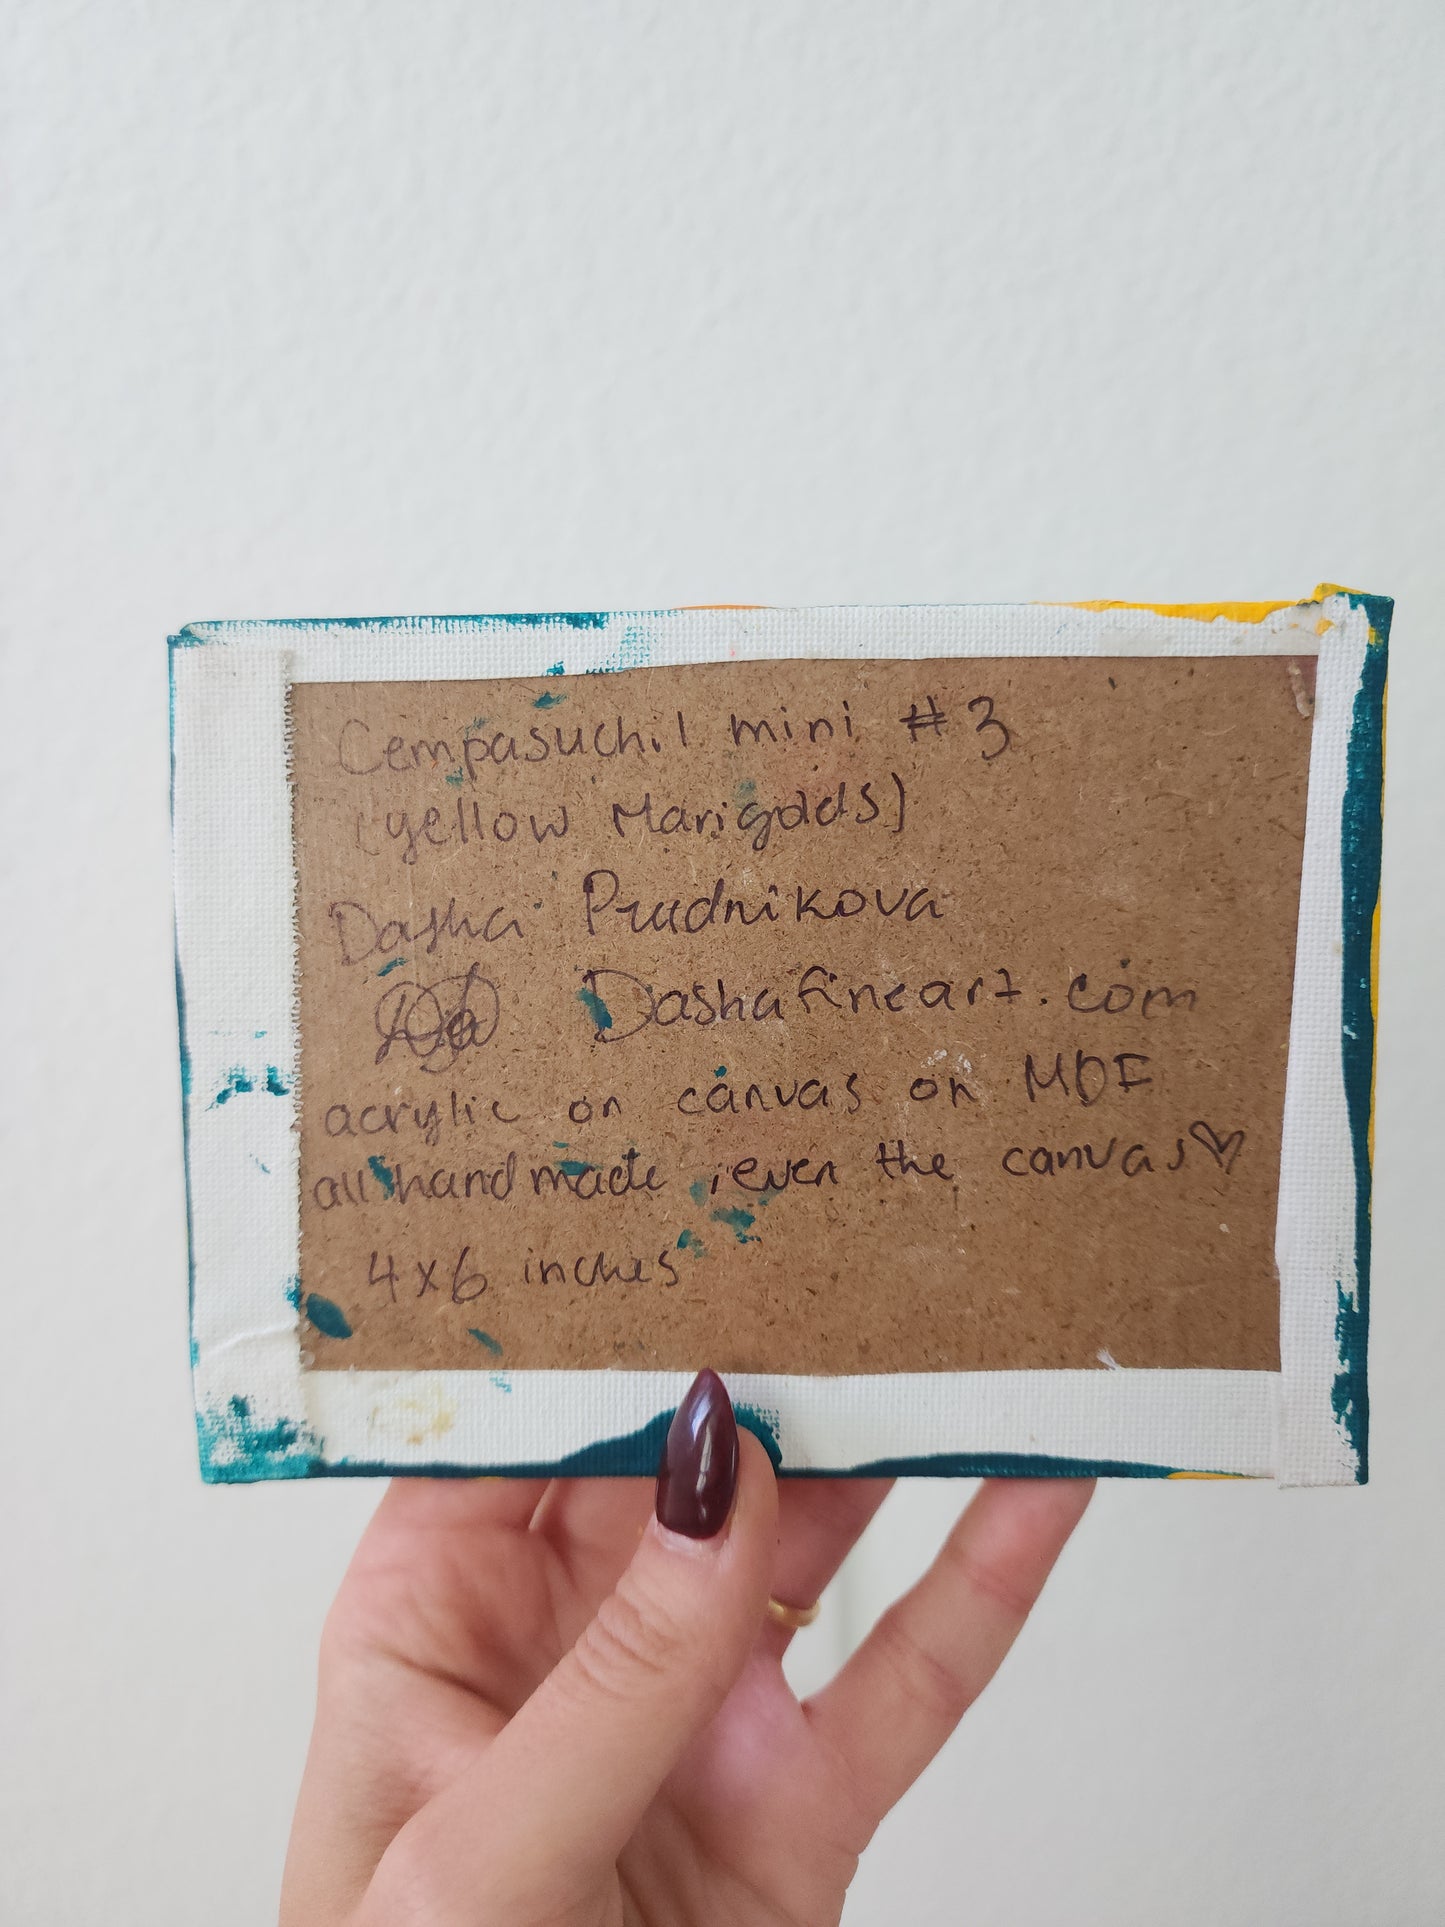 Cempasuchil mini #3
(yellow Marigolds)
Dasha Prudnikova
Dashafineart.com
acrylic on canvas on MDF
all handmade, even the canvas ♡
4x6 inches